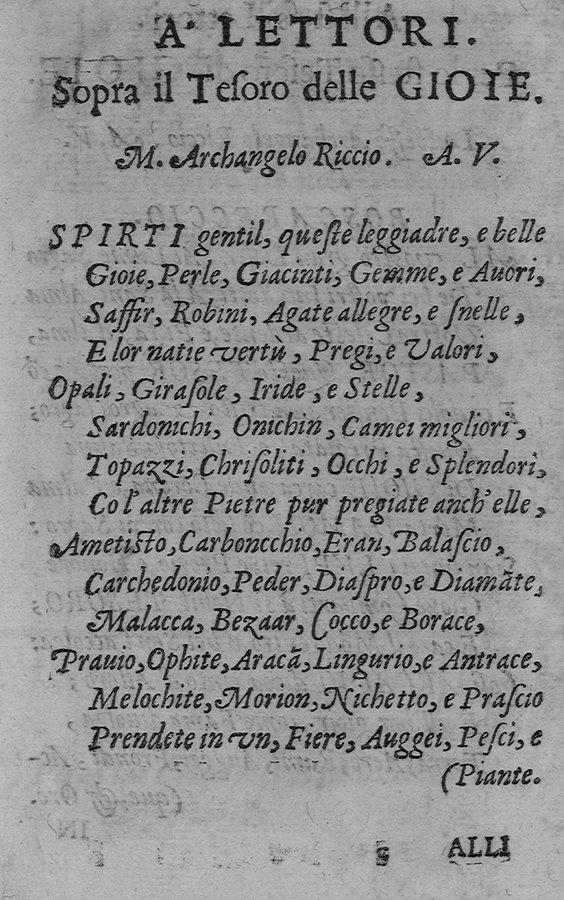 A' LETTORI.
Sopra il Teſoro delle GIOIE.
M. Archangelo Riccio. A. V.
SPIRTI gentil, queſte leggiadre, e belle
Gioie, Perle, Giacinti, Gemme, e Auori,
Saffir, Robini, Agate allegre, e ſnelle,
E lor natie vertù, Pregi, e Valori,
Opali, Giraſole, Iride, e Stelle,
Sardonichi, Onichin, Camei migliori,
Topazzi, Chriſoliti, Occhi, e Splendori,
Co l'altre Pietre pur pregiate anch'elle,
Ametiſto, Carboncchio, Eran, Balaſcio,
Carchedonio, Peder, Diaſpro, e Diamãte,
Malacca, Bezaar, Cocco, e Borace,
Prauio, Ophite, Aracã, Lingurio, e Antrace,
Melochite, Morion, Nichetto, e Praſcio
Prendete in vn, Fiere, Auggei, Peſci, e
(Piante.
ALLI